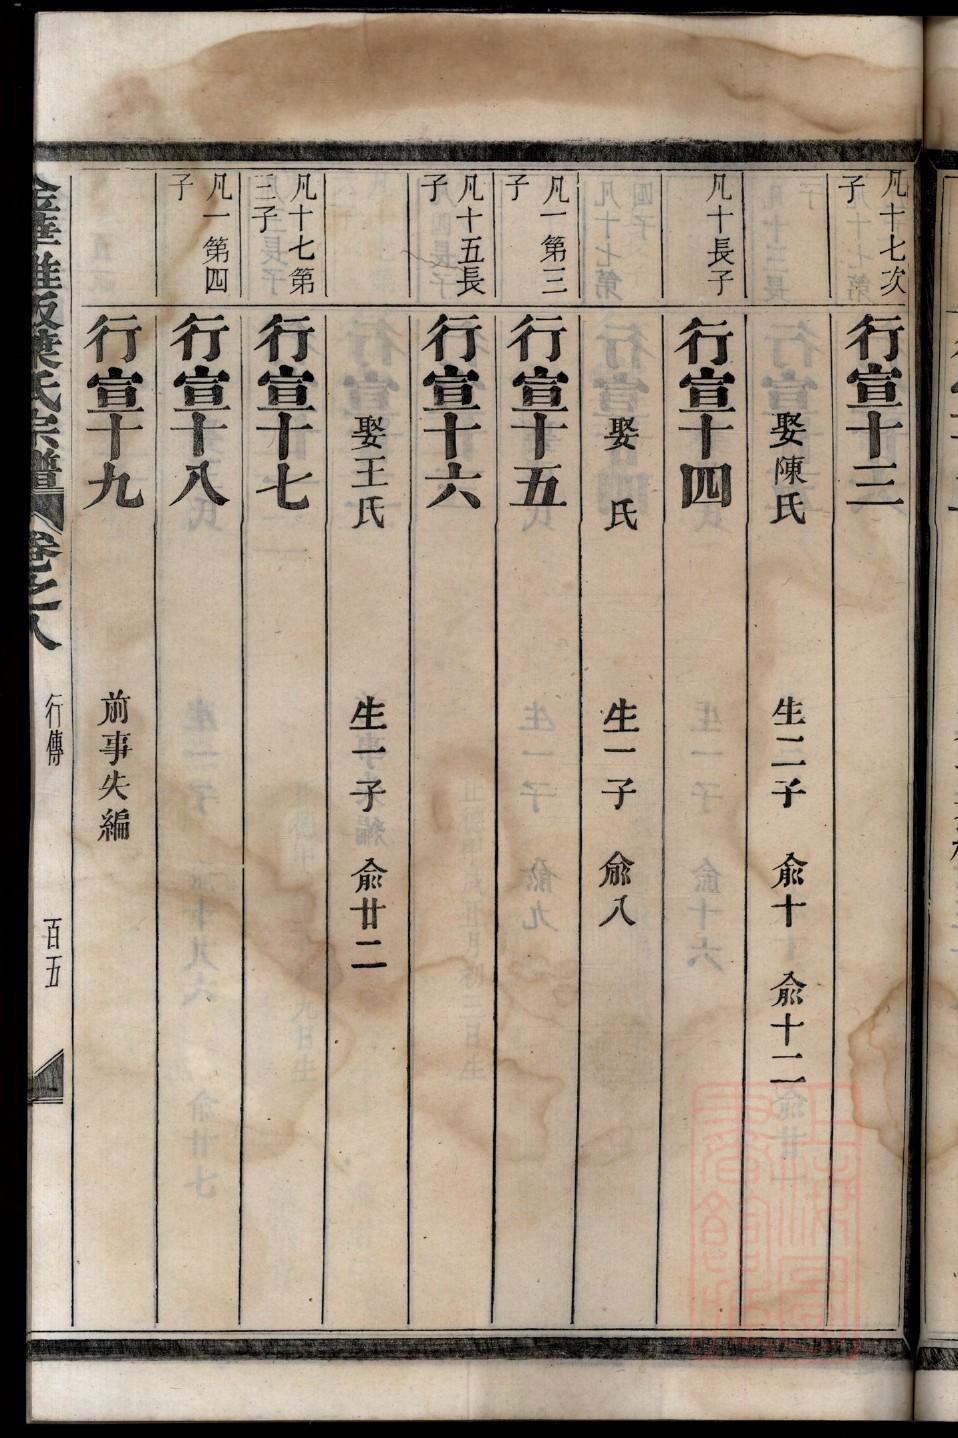 凡十七次
子
行宣十三
娶陳氏 生二子 兪十 兪十二
凡十長子
行宣十四
娶 氏 生一子 兪八
凡一第三
子
行宣十五
凡十五長
子
行宣十六
娶王氏 生一子 兪廿二
凡十七第
三子
行宣十七
凡一第四
子
行宣十八
行宣十九
前事失編
氏宗譜 卷之八 行傳 百五